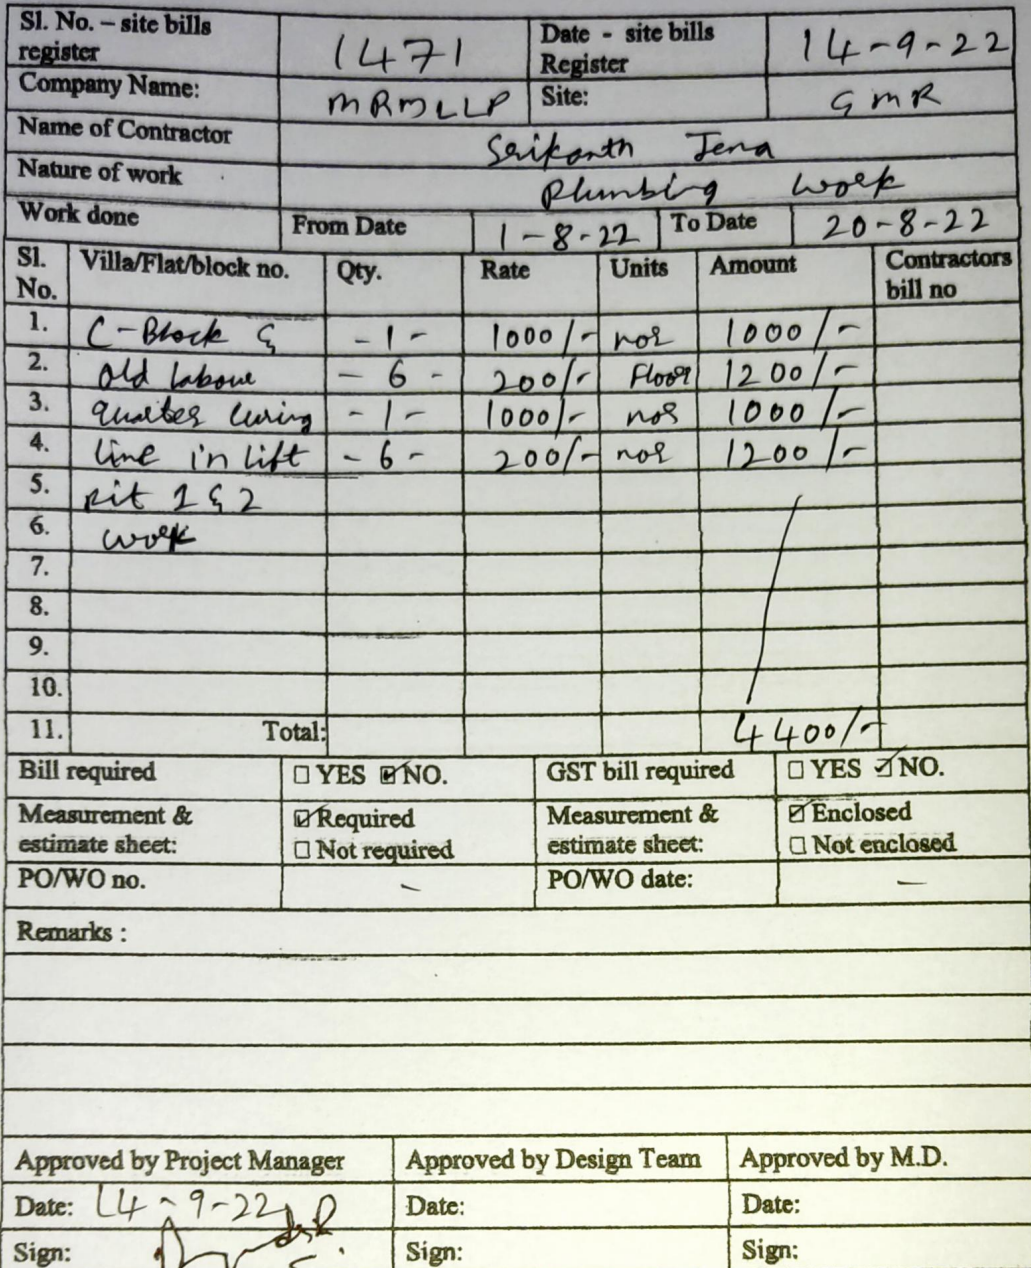 Sl. No. – site bills register 1471 Date - site bills Register 14-9-22
Company Name: MRMLLP Site: GMR
Name of Contractor Srikanth Jena
Nature of work Plumbing work
Work done From Date 1-8-22 To Date 20-8-22
Sl. No. Villa/Flat/block no. Qty. Rate Units Amount Contractors bill no
1. C-Block & -1- 1000/- nos 1000/-
2. Old labour -6- 200/- Floor 1200/-
3. quarter curing -1- 1000/- nos 1000/-
4. line in lift -6- 200/- nos 1200/-
5. pit 1 & 2
6. work
7.
8.
9.
10.
11. Total: 4400/-
Bill required ☐ YES ☑ NO. GST bill required ☐ YES ☑ NO.
Measurement & estimate sheet: ☑ Required Measurement & estimate sheet: ☑ Enclosed
☐ Not required ☐ Not enclosed
PO/WO no. - PO/WO date: -
Remarks :
Approved by Project Manager Approved by Design Team Approved by M.D.
Date: 14-9-22 Date: Date:
Sign: Sign: Sign: